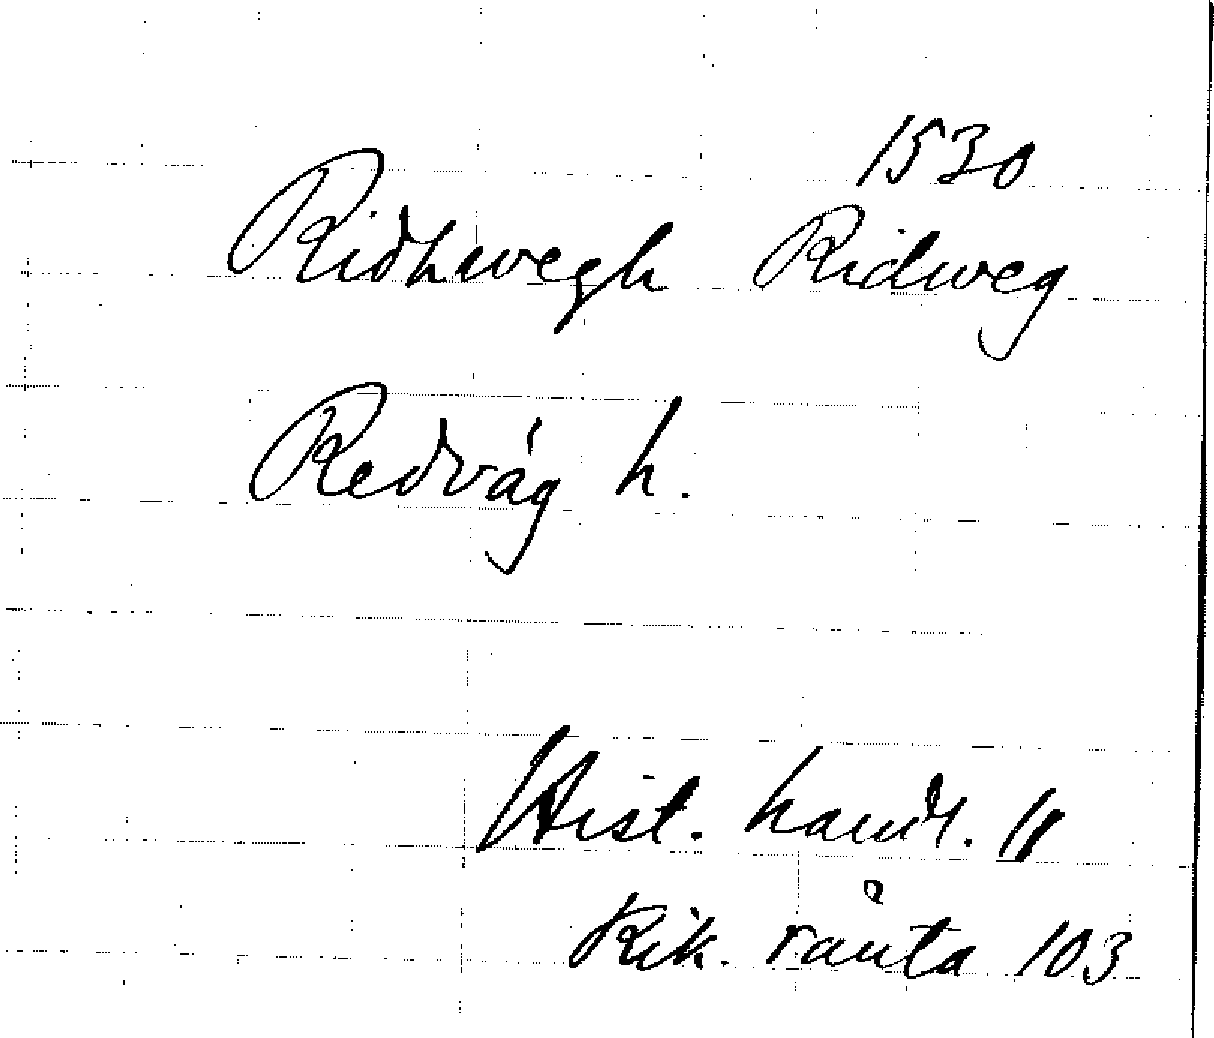 1530
Ridhwegh Ridweg
Redväg h.
Hist. handl. 11
Rik. ränta 103